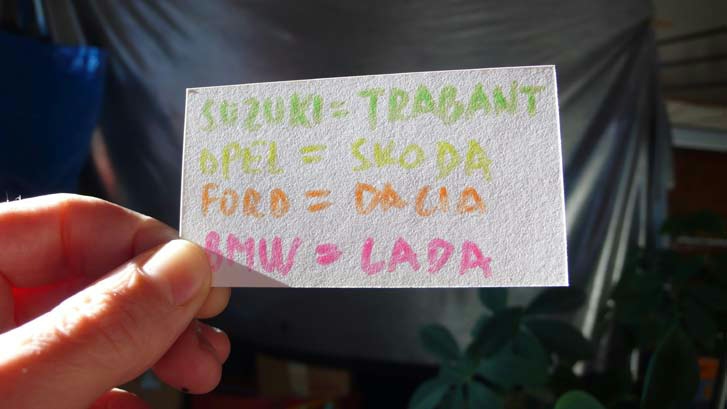 SUZUKI = TRABANT
OPEL = SKODA
FORD = DACIA
BMW = LADA